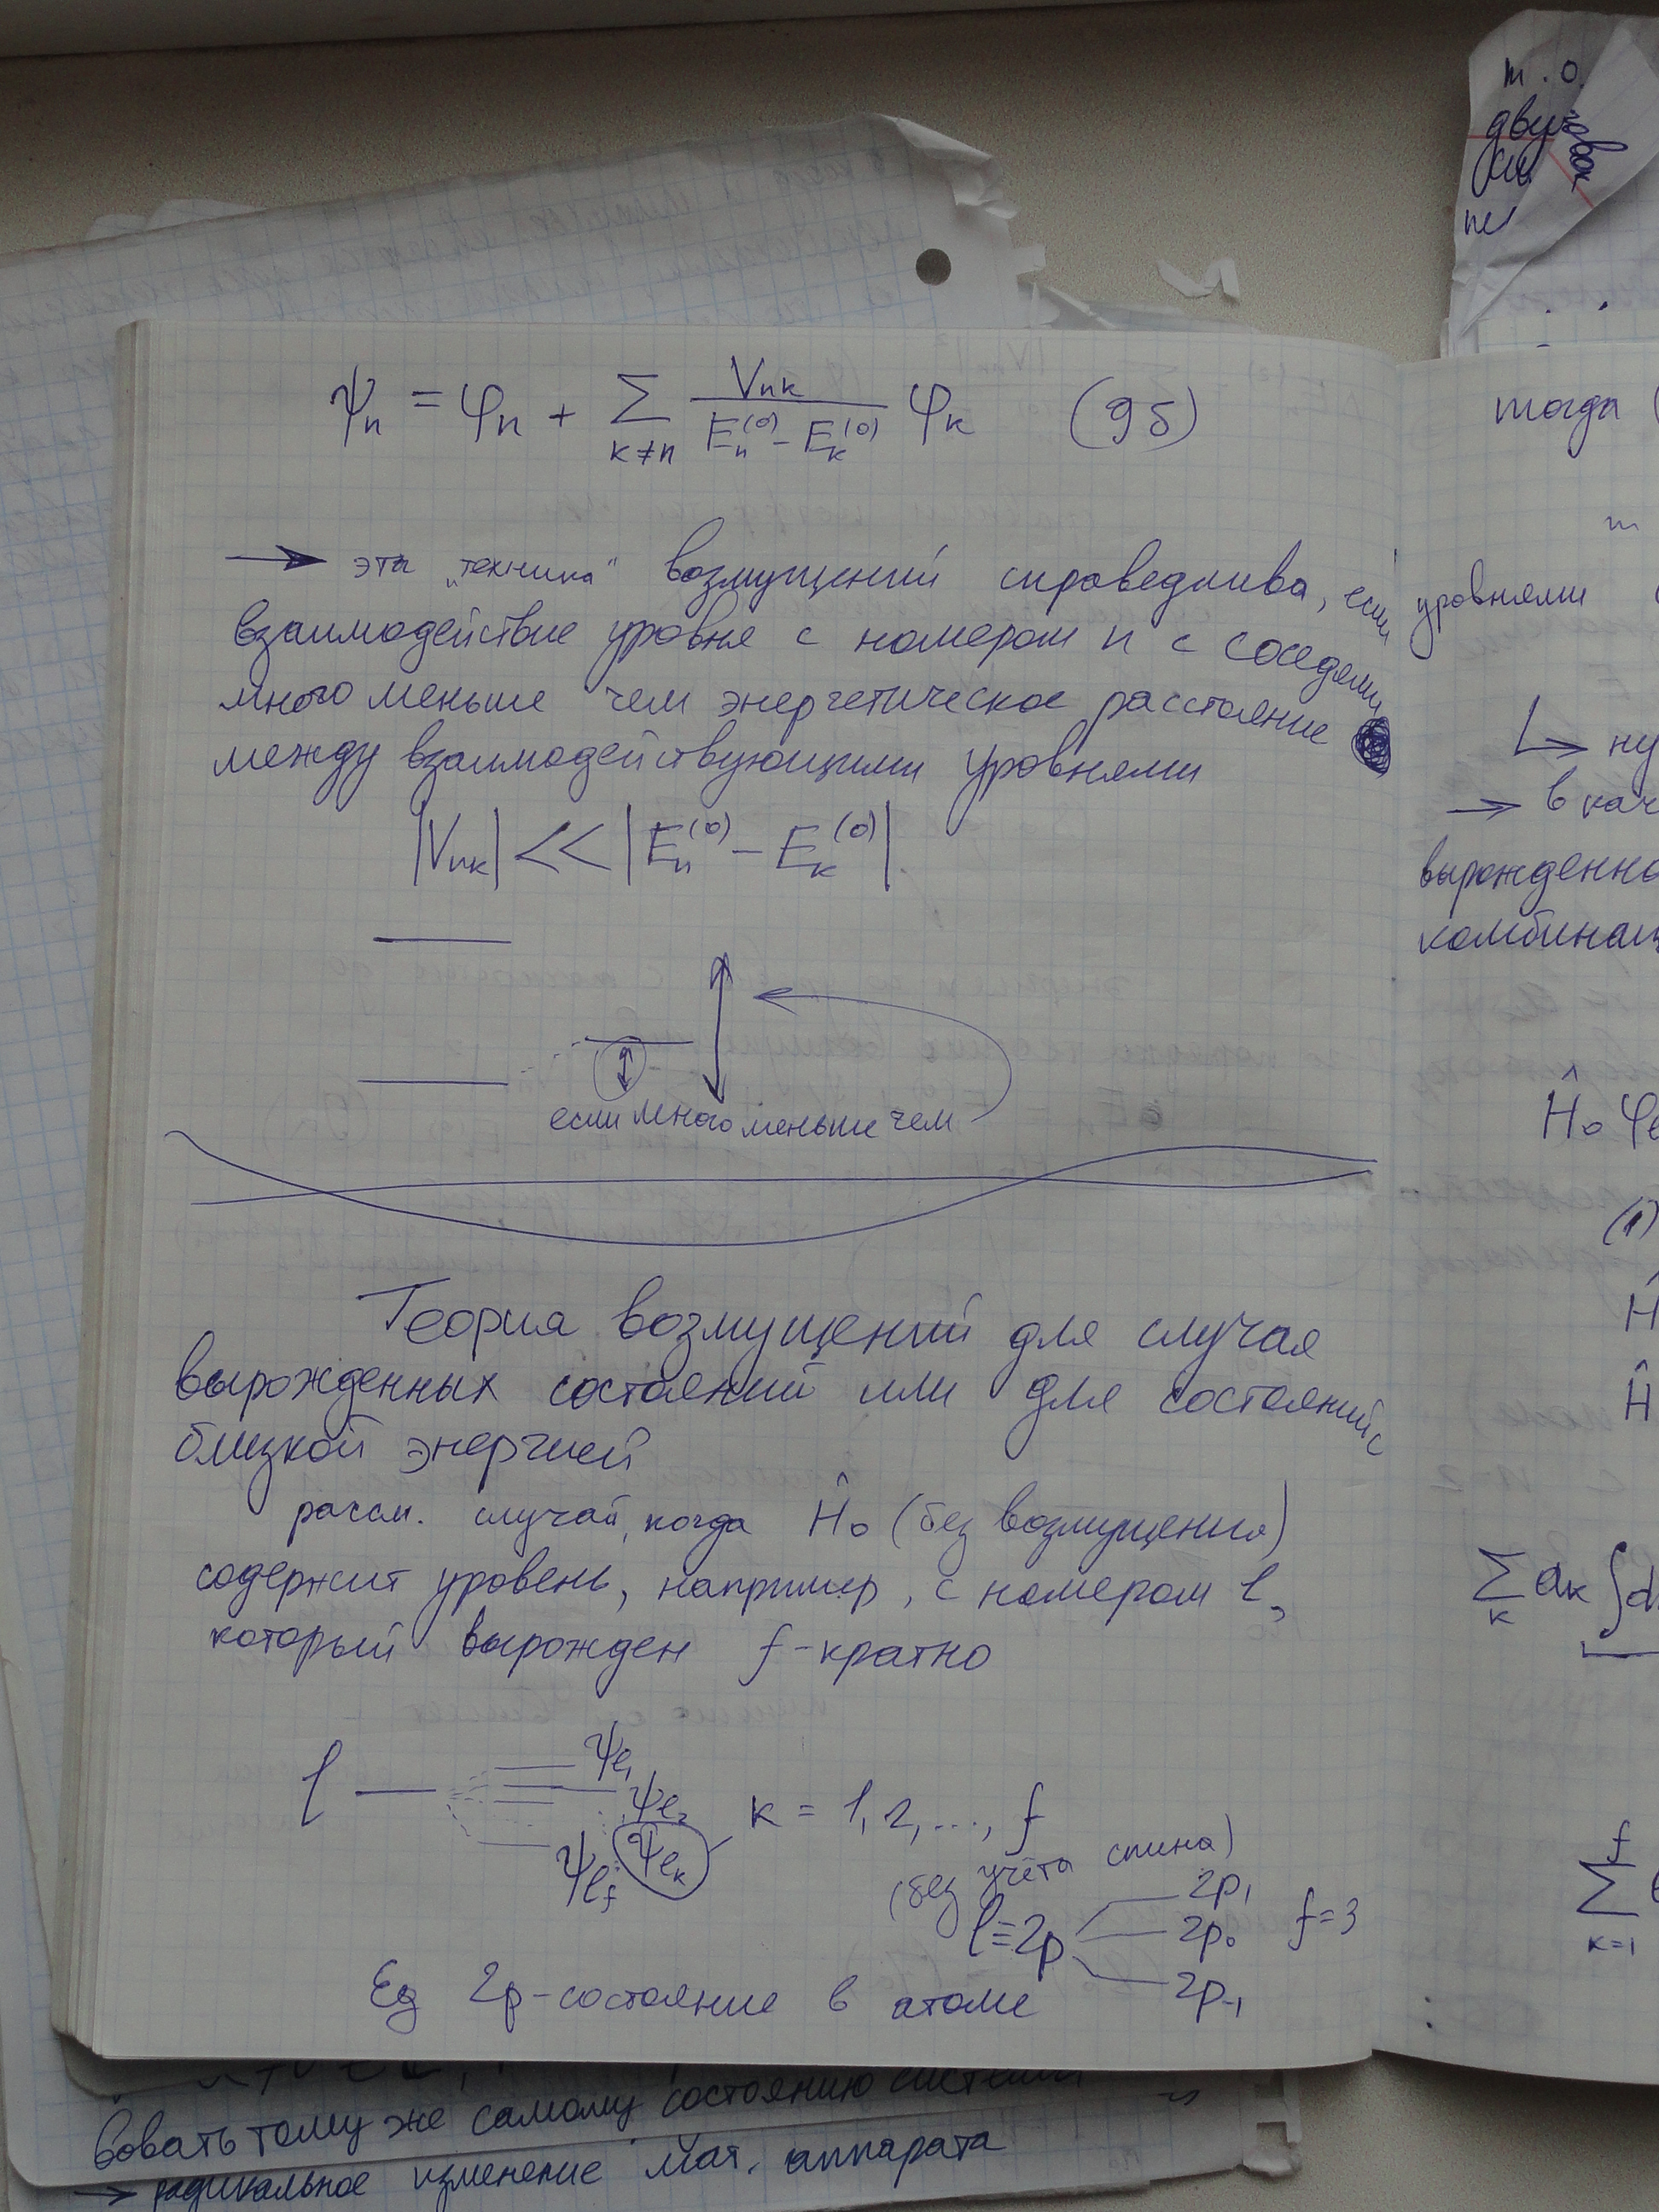 т.о.
ψn = φn + ∑ k≠n Vnk / En(0) - Ek(0) φk (9б)
→ эта „техника“ возмущений справедлива, если
взаимодействие уровня с номером n с соседями
много меньше чем энергетическое расстояние
между взаимодействующими уровнями
|Vnk| << |En(0) - Ek(0)|
если много меньше чем
Теория возмущений для случая
вырожденных состояний или для состояний с
близкой энергией
рассм. случай, когда Ĥ0 (без возмущения)
содержит уровень, например, с номером l,
который вырожден f-кратно
l — ψl1
ψl2
ψlk k = 1, 2, ..., f
ψlf
(без учёта спина)
l=2p 2p1
2p0 f=3
2p-1
Eg 2p-состояние в атоме
тогда (
уровнями
↳ ну
→ в кач
вырожденно
комбинац
Ĥ0 φl
(1)
Ĥ
Ĥ
∑ k ak ∫d
f ∑ k=1
вовать тому же самому состоянию системы
→ радикальное изменение мат. аппарата